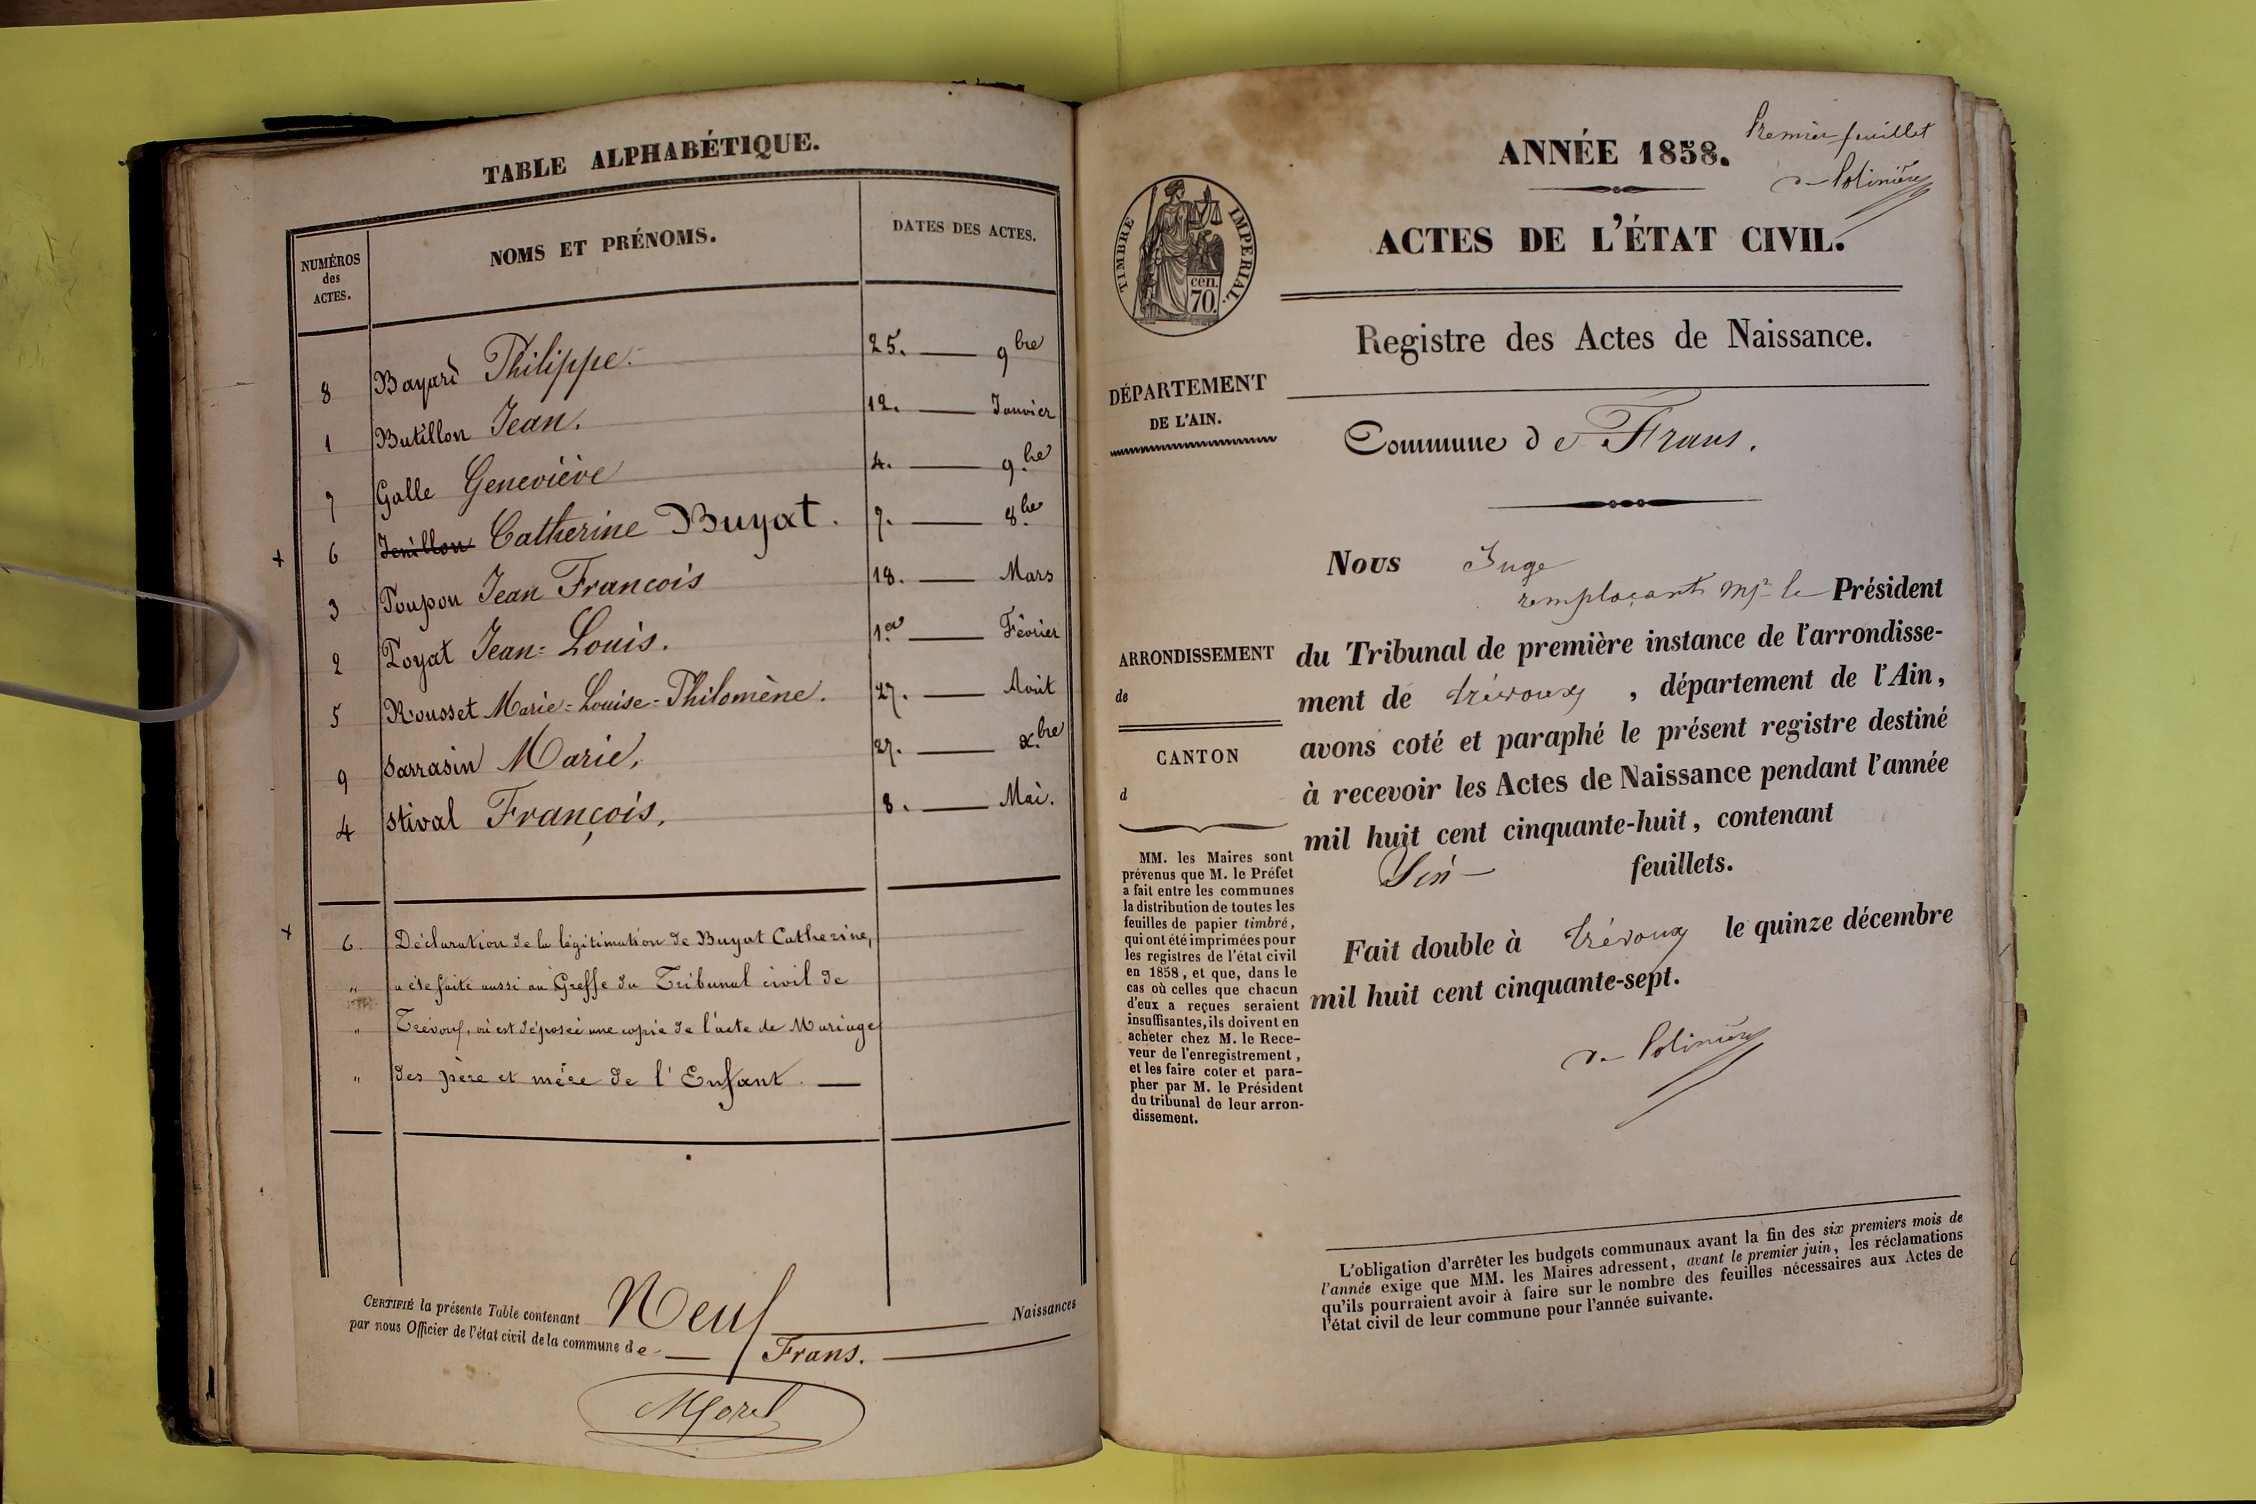 TABLE ALPHABÉTIQUE.
NUMÉROS des ACTES. NOMS ET PRÉNOMS. DATES DES ACTES.
8 Bayard Philippe. 25. — 9bre
1 Butillon Jean. 12. — Janvier
7 Galle Geneviève 4. — 9bre
+ 6 Jenillon Catherine Buyat. 7. — 8bre
3 Poupon Jean François 18. — Mars
2 Poyat Jean=Louis. 1er — Février
5 Rousset Marie=Louise=Philomène. 27. — Août
9 Sarrasin Marie, 27. — Xbre
4 Stival François, 8. — Mai.
+ 6. Déclaration de la légitimation de Buyat Catherine,
" a été faite aussi au Greffe du Tribunal civil de
" Trévoux, où est déposée une copie de l'acte de Mariage
" des père et mère de l'Enfant. —
CERTIFIÉ la présente Table contenant Neuf Naissances
par nous Officier de l'état civil de la commune de — Frans. —
Morel
Premier feuillet
de Polinière
ANNÉE 1858.
ACTES DE L'ÉTAT CIVIL.
TIMBRE IMPERIAL.
cen.
70.
Registre des Actes de Naissance.
DÉPARTEMENT
DE L'AIN.
Commune de Frans.
Nous Juge
remplaçant Mr le Président
du Tribunal de première instance de l'arrondisse-
ment de trévoux, département de l'Ain,
avons coté et paraphé le présent registre destiné
à recevoir les Actes de Naissance pendant l'année
mil huit cent cinquante-huit, contenant
Six — feuillets.
Fait double à trévoux le quinze décembre
mil huit cent cinquante-sept.
de Polinière
ARRONDISSEMENT
de
CANTON
d
MM. les Maires sont
prévenus que M. le Préfet
a fait entre les communes
la distribution de toutes les
feuilles de papier timbré,
qui ont été imprimées pour
les registres de l'état civil
en 1858, et que, dans le
cas où celles que chacun
d'eux a reçues seraient
insuffisantes, ils doivent en
acheter chez M. le Rece-
veur de l'enregistrement,
et les faire coter et para-
pher par M. le Président
du tribunal de leur arron-
dissement.
L'obligation d'arrêter les budgets communaux avant la fin des six premiers mois de
l'année exige que MM. les Maires adressent, avant le premier juin, les réclamations
qu'ils pourraient avoir à faire sur le nombre des feuilles nécessaires aux Actes de
l'état civil de leur commune pour l'année suivante.